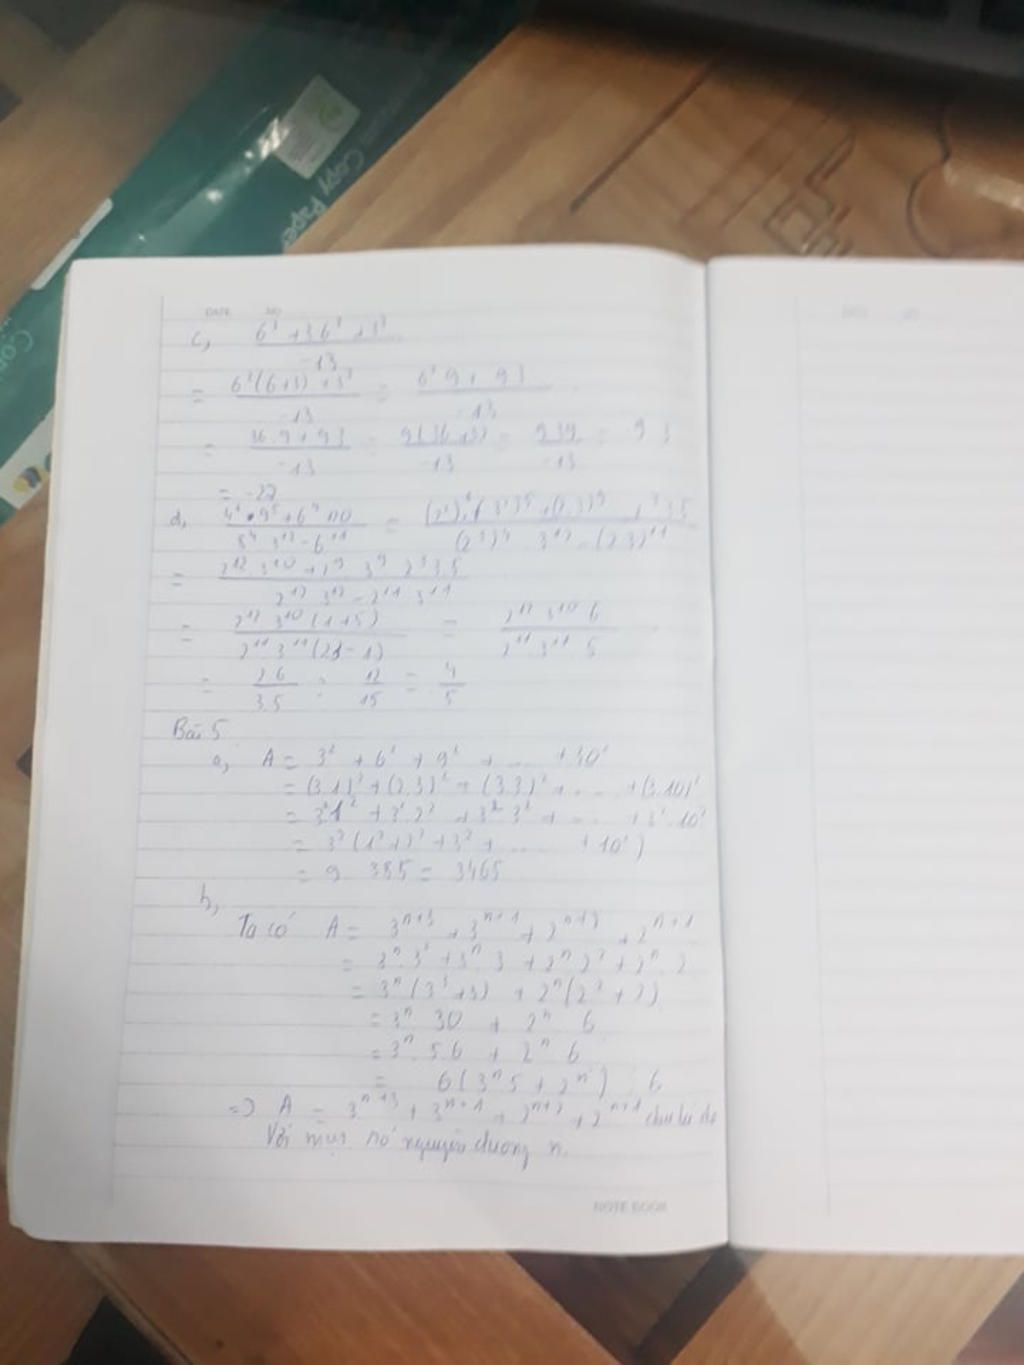 Copy Paper
DATE NO
c, 6³ + 3.6² + 3³
-13
= 6²(6+3) + 3³ = 6².9 + 9.3
-13 -13
= 36.9 + 9.3 = 9(36+3) = 9.39 = 9.3
-13 -13 -13
= -27
d, 4⁶.9⁵ + 6⁹.120 = (2²)⁶.(3²)⁵ + (2.3)⁹.2³.3.5
8⁴.3¹² - 6¹¹ (2³)⁴.3¹² - (2.3)¹¹
= 2¹².3¹⁰ + 2⁹.3⁹.2³.3.5
2¹².3¹² - 2¹¹.3¹¹
= 2¹².3¹⁰(1+5) = 2¹².3¹⁰.6
2¹¹.3¹¹(2.3-1) 2¹¹.3¹¹.5
= 2.6 = 12 = 4
3.5 15 5
Bài 5
a, A = 3² + 6² + 9² + ... + 30²
= (3.1)² + (2.3)² + (3.3)² + .... + (3.10)²
= 3².1² + 3².2² + 3².3² + ... + 3².10²
= 3²(1² + 2² + 3² + ... + 10²)
= 9.385 = 3465
b,
Ta có A = 3ⁿ⁺³ + 3ⁿ⁺¹ + 2ⁿ⁺² + 2ⁿ⁺¹
= 3ⁿ.3³ + 3ⁿ.3 + 2ⁿ.2² + 2ⁿ.2
= 3ⁿ(3³+3) + 2ⁿ(2²+2)
= 3ⁿ.30 + 2ⁿ.6
= 3ⁿ.5.6 + 2ⁿ.6
= 6(3ⁿ.5 + 2ⁿ) ⋮ 6
=> A = 3ⁿ⁺³ + 3ⁿ⁺¹ + 2ⁿ⁺² + 2ⁿ⁺¹ chia hết
Với mọi số nguyên dương n.
NOTE BOOK